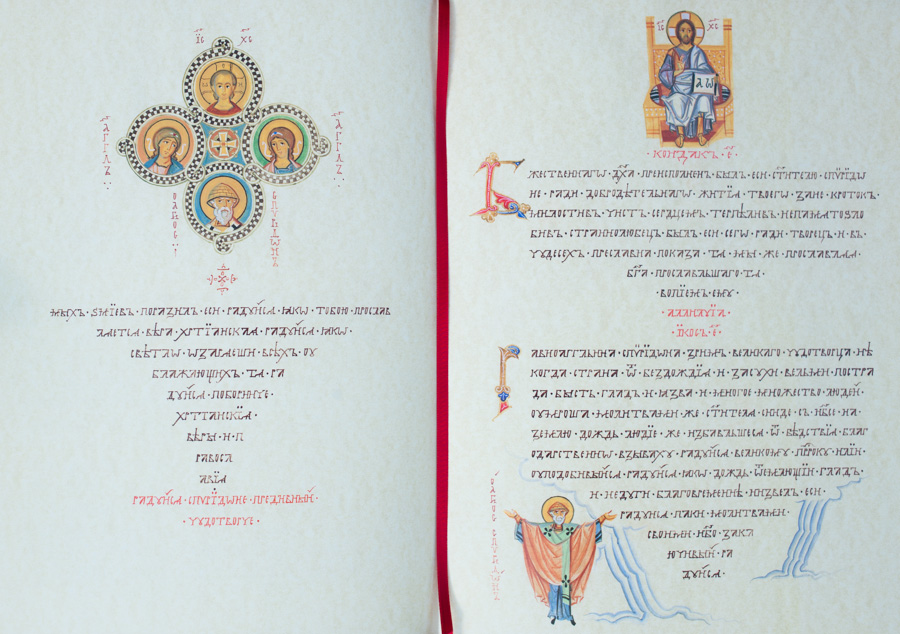 І҃С Х҃С
АГГЛЪ АГГЛЪ
мыхъ · ѕмїевъ · поразилъ · еси · радꙋйсѧ · ꙗкѡ · тобою · прослав
лѧетсѧ · вѣра · хрⷭ҇тїанскаѧ · радꙋйсѧ · ꙗкѡ ·
свѣтлѡ · ѡзарѧеши · всѣхъ · оу
блажающихъ · тѧ · ра
дꙋйсѧ · поборниче ·
хрⷭ҇тїанскїѧ ·
вѣры · и · п
равосл
авїѧ
радꙋйсѧ · спѷрїдѡне · предивный ·
· чꙋдотворче ·
І҃С Х҃С
А Ѡ
· кондакъ · є҃ ·
Бжественнагѡ · дх҃а · преисполненъ · былъ · еси · ст҃ителю · спѷрїдѡ
не · ради · добродѣтельнагѡ · житїѧ · твоегѡ · зане · кротокъ ·
милостивъ · чистъ · сердцемъ · терпѣливъ · непамѧтозло
бивъ · страннолюбецъ · былъ · еси · сегѡ · ради · творецъ · и · въ ·
чꙋдесехъ · преславна · показа · тѧ · мы · же · прославлѧѧ
бг҃а · прославльшаго · тѧ ·
· вопїемъ · емꙋ ·
· аллилꙋїа ·
· їкосъ · є҃ ·
Равноаггльна · спѷрїдѡна · зримъ · великаго · чꙋдотворца · нѣ
когда · страна · ѿ · бездождїѧ · и · засꙋхи · вельми · постра
да · бысть · гладъ · и · ꙗзва · и · многое · множество · людей ·
оумроша · молитвами · же · ст҃итела · сниде · съ · нб҃се · на ·
землю · дождь · людїе · же · избавльшесѧ · ѿ · бѣдствїѧ · благ
одарственнѡ · взывахꙋ · радꙋйсѧ · великомꙋ · прⷪ҇рокꙋ · илїи ·
оуподобивыйсѧ · радꙋйсѧ · ꙗкѡ · дождь · ѿемлющїй · гладъ ·
и · недꙋги · благовременнѣ · низвелъ · еси ·
радꙋйсѧ · паки · молитвами ·
своими · нб҃о · закл
ючивый · ра
дꙋйсѧ ·